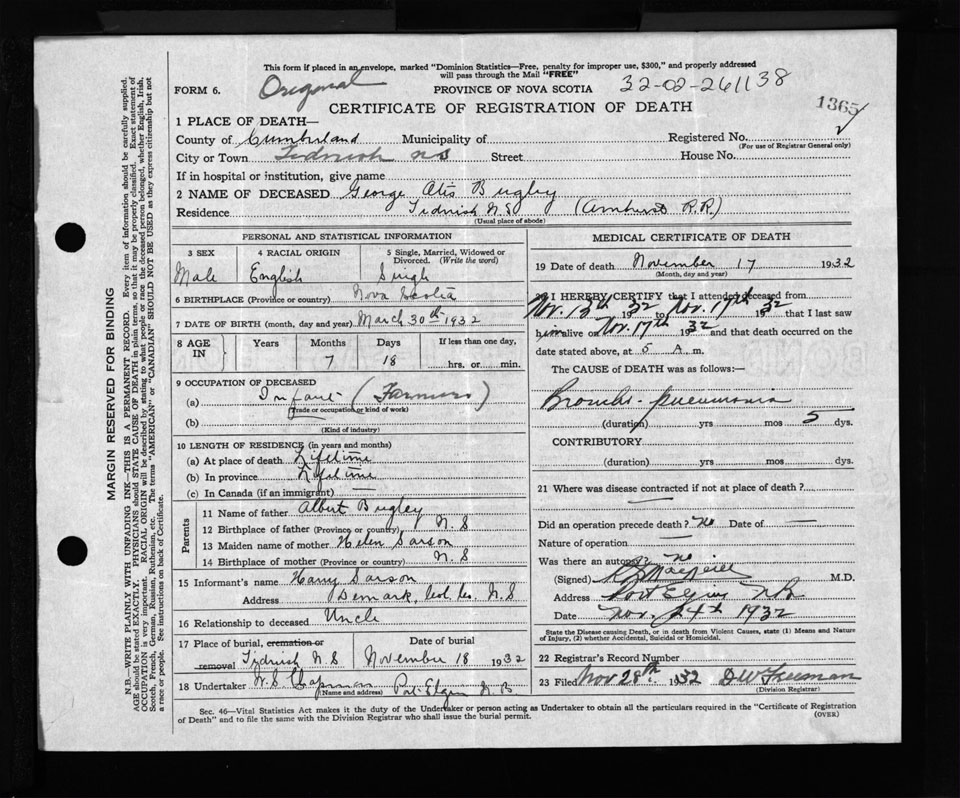 This form if placed in an envelope, marked "Dominion Statistics—Free, penalty for improper use, $300," and properly addressed
will pass through the Mail "FREE"
FORM 6. Original PROVINCE OF NOVA SCOTIA 32-02-261138
CERTIFICATE OF REGISTRATION OF DEATH 1365
1 PLACE OF DEATH—
County of Cumberland Municipality of Registered No.
(For use of Registrar General only)
City or Town Tidnish N S Street House No.
If in hospital or institution, give name
2 NAME OF DECEASED George Otis Bugley
Residence Tidnish N.S (Amherst R.R)
(Usual place of abode)
PERSONAL AND STATISTICAL INFORMATION
3 SEX 4 RACIAL ORIGIN 5 Single, Married, Widowed or
Divorced. (Write the word)
Male English Single
6 BIRTHPLACE (Province or country) Nova Scotia
7 DATE OF BIRTH (month, day and year) March 30th 1932
8 AGE IN Years Months Days If less than one day,
7 18 hrs. or min.
9 OCCUPATION OF DECEASED
(a) Infant (Farmers)
(Trade or occupation or kind of work)
(b)
(Kind of industry)
10 LENGTH OF RESIDENCE (in years and months)
(a) At place of death Lifetime
(b) In province Lifetime
(c) In Canada (if an immigrant) —
Parents
11 Name of father Albert Bugley
12 Birthplace of father (Province or country) N. S
13 Maiden name of mother Helen Sarson
14 Birthplace of mother (Province or country) N. S
15 Informant's name Harry Sarson
Address N. S
16 Relationship to deceased Uncle
17 Place of burial, cremation or
removal Tidnish N. S
Date of burial
November 18 1932
18 Undertaker W. S Chapman Port Elgin N. B
(Name and address)
MEDICAL CERTIFICATE OF DEATH
19 Date of death November 17 1932
(Month, day and year)
20 I HEREBY CERTIFY that I attended deceased from
Nov. 13th 1932 to Nov. 17th 1932 that I last saw
him alive on Nov. 17th 1932 and that death occurred on the
date stated above, at 5 A m.
The CAUSE of DEATH was as follows:—
Broncho-pneumonia
(duration) yrs mos 5 dys.
CONTRIBUTORY
(duration) yrs mos. dys.
21 Where was disease contracted if not at place of death?
Did an operation precede death? No Date of —
Nature of operation —
Was there an autopsy? No
(Signed) M.D.
Address Port Elgin N.B.
Date Nov. 24th 1932
State the Disease causing Death, or in death from Violent Causes, state (1) Means and Nature
of Injury, (2) whether Accidental, Suicidal or Homicidal.
22 Registrar's Record Number
23 Filed Nov 28th 1932 D W Freeman
(Division Registrar)
Sec. 46—Vital Statistics Act makes it the duty of the Undertaker or person acting as Undertaker to obtain all the particulars required in the "Certificate of Registration
of Death" and to file the same with the Division Registrar who shall issue the burial permit.
(OVER)
MARGIN RESERVED FOR BINDING
N.B.—WRITE PLAINLY WITH UNFADING INK—THIS IS A PERMANENT RECORD. Every item of information should be carefully supplied.
AGE should be stated EXACTLY. PHYSICIANS should STATE CAUSE OF DEATH in plain terms, so that it may be properly classified. Exact statement of
OCCUPATION is very important. RACIAL ORIGIN will be described by stating to what people or race the deceased person belonged, whether English, Irish,
Scotch, French, German, Russian, Ruthenian, etc. The terms "AMERICAN" or "CANADIAN" SHOULD NOT BE USED as they express citizenship but not
a race or people. See instructions on back of Certificate.